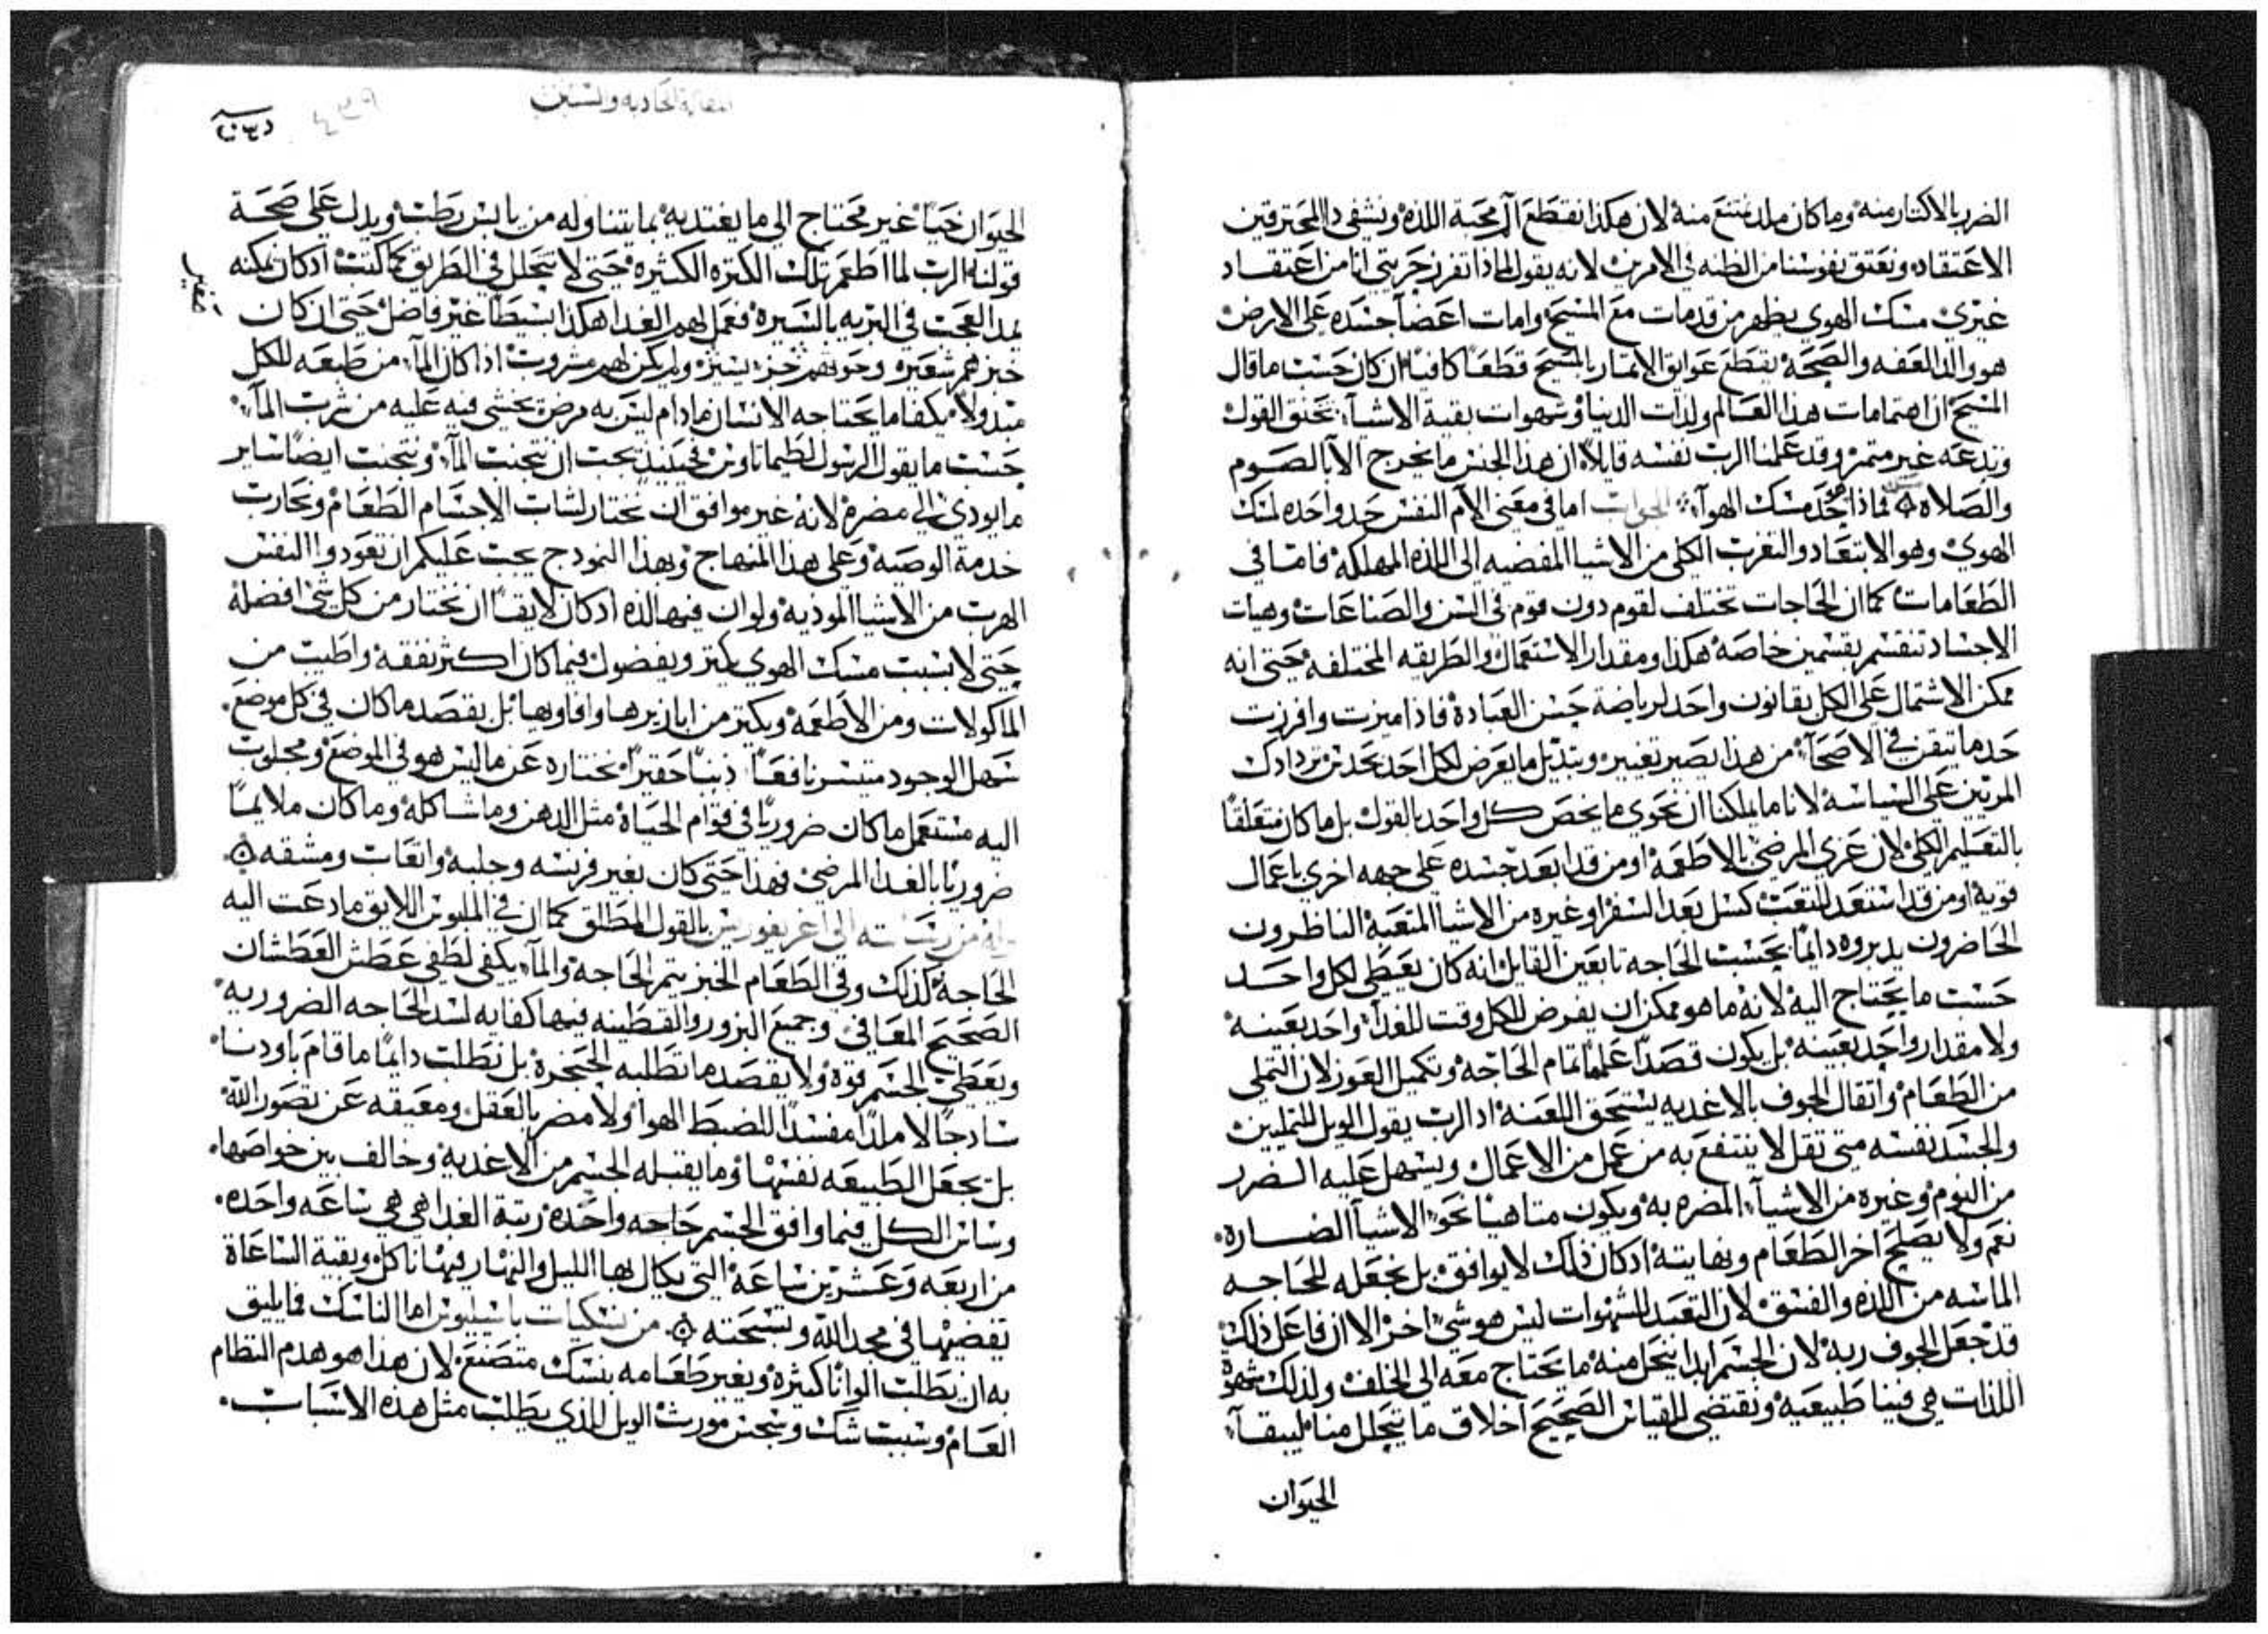 الضرر بالاكثار منه وما كان ملد نمتنع منه لان هكذا نقطع آلة محبة اللذه ونشفي دا المحترقين
الاعتقاد ونعتق نفوسنا من الظنه في الامرين لانه يقول لماذا تفرز حريتي انا من اعتقاد
غيري مسك الهوي يظهر من قد مات مع المسيح وامات اعضآ جسده على الارض
هو والد العفه والصحه يقطع عوايق الاتمار بالمسيح قطعًا كافيًا ان كان حسب ما قال
المسيح ان اهتمامات هذا العالم ولذات الدنيا وشهوات بقية الاشيآ تخنق القول
وتدعه غير متمر وقد علمنا الرب نفسه قايلًا ان هذا الجنس ما يخرج الا بالصوم
والصلاه فماذا حد مسك الهوآ الجواب اما في معني الام النفس حد واحد لمسك
الهوي وهو الابتعاد والتغرب الكلي من الاشيا المفضيه الى اللذه المهلكه فاما في
الطعامات كما ان الحاجات تختلف لقوم دون قوم في السن والصناعات وهيات
الاجساد تنقسم بقسمين خاصه هكذا ومقدار الاستعمال والطريقه المختلفه حتى انه
ممكن الاشتمال على الكل بقانون واحد لرياضة حسن العبادة فاذا ميزت وافرزت
حد ما تيقن في الاصحآ من هذا يصير تغيير وتبديل ما يعرض لكل احد
المرتبين على السياسه لانا ما يمكنا ان نحوي ما يخص كل واحد بالقول بل ما كان متعلقًا
بالتعليم الكلي لان عزى المرضي بالاطعمه او من قد ابعد جسده على جهه اخري باعمال
قويه او من قد استعد للتعب كسل بعد السفر او غيره من الاشيا المتعبه الناظرون
الحاضرون يدبروه دايمًا بحسب الحاجه تابعين القايل انه كان يعطي لكل واحد
حسب ما يحتاج اليه لانه ما هو ممكن ان يفرض للكل وقت للغدآ واحد بعينه
ولا مقدار واحد بعينه بل يكون قصدًا علمًا تمام الحاجه وتكميل العوز لان التملي
من الطعام واتقال الجوف بالاغديه يستحق اللعنه اد الرب يقول الويل للمتمليين
والجسد نفسه متى تقل لا ينتفع به من عمل من الاعمال ويسهل عليه الضرر
من النوم وغيره من الاشيآ المضره به ويكون متاهبًا نحو الاشيآ الضاره
نعم ولا يصلح اخر الطعام ونهايته اد كان ذلك لا يوافق بل نجعله للحاجه
الماسه من اللذه والفسق لان التعبد للشهوات ليس هو شي اخر الا ان فاعل ذلك
قد جعل الجوف ربه لان الجسم ابدا ينحل منه ما يحتاج معه الى الخلف ولذلك شهوة
اللذات هي فينا طبيعيه وتقتضي القياس الصحيح اخلاق ما يتحلل منا ليبقآ
الحيوان
المقاله الحاديه والستين
الحيوان حيًا غير محتاج الي ما يغتدي به بما يتناوله من يابس رطب ويدل على صحة
قولنا الرب لما اطعم تلك الكتره الكثيره حتى لا تتحلل في الطريق كما كتب اد كان يمكنه
يمد العجب في البريه بالسيره فعمل لهم الغدا هكذا بسيطًا غير فاضل حتى ان كان
خبزهم شعيره وحوتهم جزء يسيره ولم يكن لهم مشروب اذا كان المآ من طبعه للكل
مبدولًا يكفا ما يحتاجه الانسان ما دام ليس به مرض يخشى فيه عليه من شرب المآ
حسب ما يقول الرسول لطيماتاوس فحينيد يجب ان نتجنب المآ ونتجنب ايضًا ساير
ما يودي الي مضره لانه غير موافق ان نختار لشات الاجسام الطعام ونحارب
خدمة الوصيه وعلى هذا المنهاج وبهذا النمودج يجب عليكم ان تعودوا النفس
الهرب من الاشيا الموديه ولو ان فيها لذه اد كان لايقًا ان نختار من كل شي افضله
حتى لا بسبب مسك الهوي يكتر ويفضول فيما كان اكثر نفقه واطيب من
الماكولات ومن الاطعمه ويكتر من ابازيرها وافاويها بل يقصد ما كان في كل موضع
سهل الوجود متيسر نافعًا دنيًا حقيرًا نختاره عن ما ليس هو في الموضع ومجلوب
اليه مستعمل ما كان ضروريًا في قوام الحياة مثل الدهن وما شاكله وما كان ملايمًا
ضروريًا بالغدا المرضي فهذا حتى كان بغير فريسه وجلبه واتعاب ومشقه
من رسالته الى اغريغوريس بالقول المطلق كما ان في الملبوس اللايق ما دعت اليه
الحاجه كذلك وفي الطعام الخبز يتمم الحاجه والمآ يكفي لطفي عطش العطشان
الصحيح المعافي وجميع البزور والقطينه فيها كفايه لسد الحاجه الضروريه
ويعطي الجسم قوة ولا يقصد ما تطلبه الحنجره بل نطلب دايمًا ما قام باودنا
سادجًا لا ملدًا مفسدًا للضبط الهوا ولا مضر بالعقل ومعيقه عن تصور الله
بل نجعل الطبيعه نفسها وما يقبله الجسم من الاغديه وخالف بين خواصها
وساس الكل فيما وافق الجسم حاجه واحده رتبة الغدا هي هي ساعه واحده
من اربعه وعشرين ساعه التي يكال بها الليل والنهار فيها ناكل وبقية الساعاة
تقضيها في مجد الله وتسبحته من نسكيات باسيليوس اما الناسك فما يليق
به ان يطلب الوانًا كثيره ويغير طعامه بنسك متصنع لان هذا هو هدم النظام
العام وسبب شك وسجس مورث الويل للذي يطلب مثل هذه الاسباب